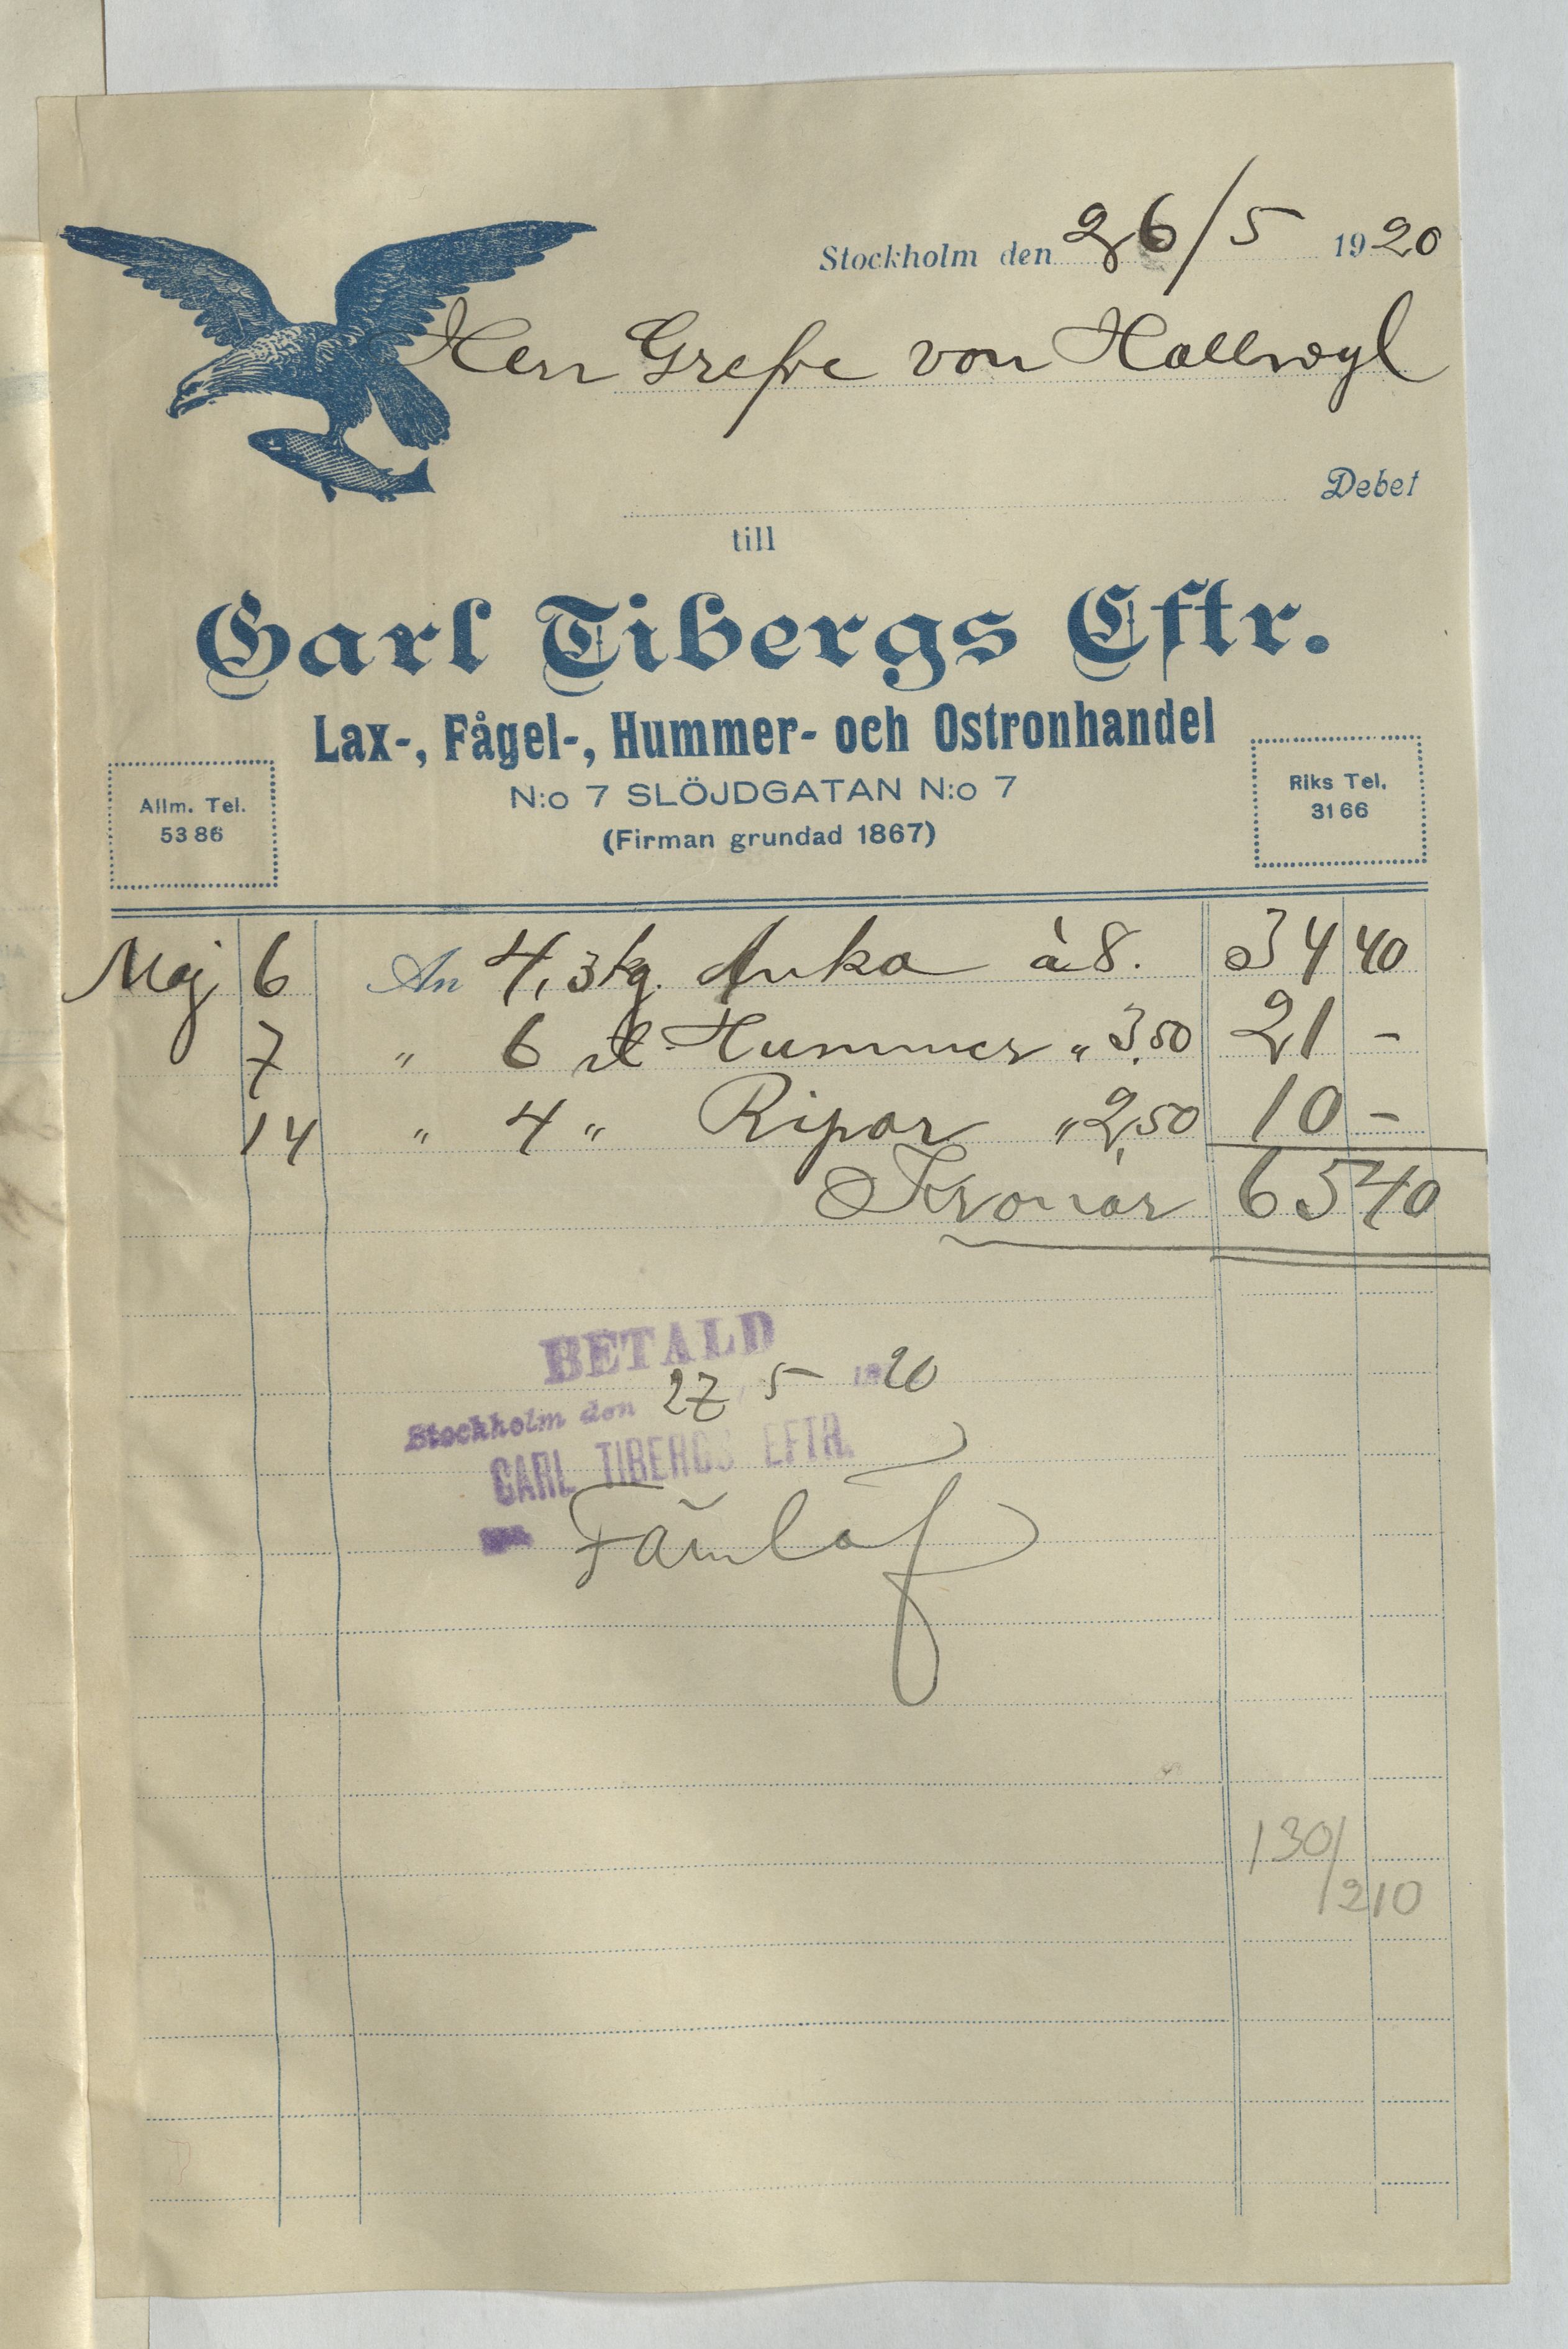 Stockholm den 26/5 1920
Herr Grefve von Hallwyl
Debet
till
Carl Tibergs Eftr.
Lax-, Fågel-, Hummer- och Ostronhandel
N:o 7 SLÖJDGATAN N:o 7
(Firman grundad 1867)
Allm. Tel.
53 86
Riks Tel.
31 66
Maj 6 An 4,3 kg. Anka à 8. 34 40
7 " 6 st Hummer " 3.50 21 -
14 " 4 " Ripor " 2,50 10 -
Kronor 65 40
BETALD
Stockholm den 27 5 1920
CARL TIBERGS EFTR.
130/
210